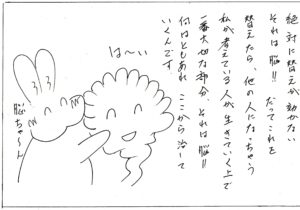 絶対に替えが効かない
それは脳!! だってこれを
替えたら、他の人になっちゃう
私が考えている人が生きていく上で
一番大切な部分、それは脳!!
何はともあれ ここから治して
いくんです
は〜い
脳ちゃ〜ん